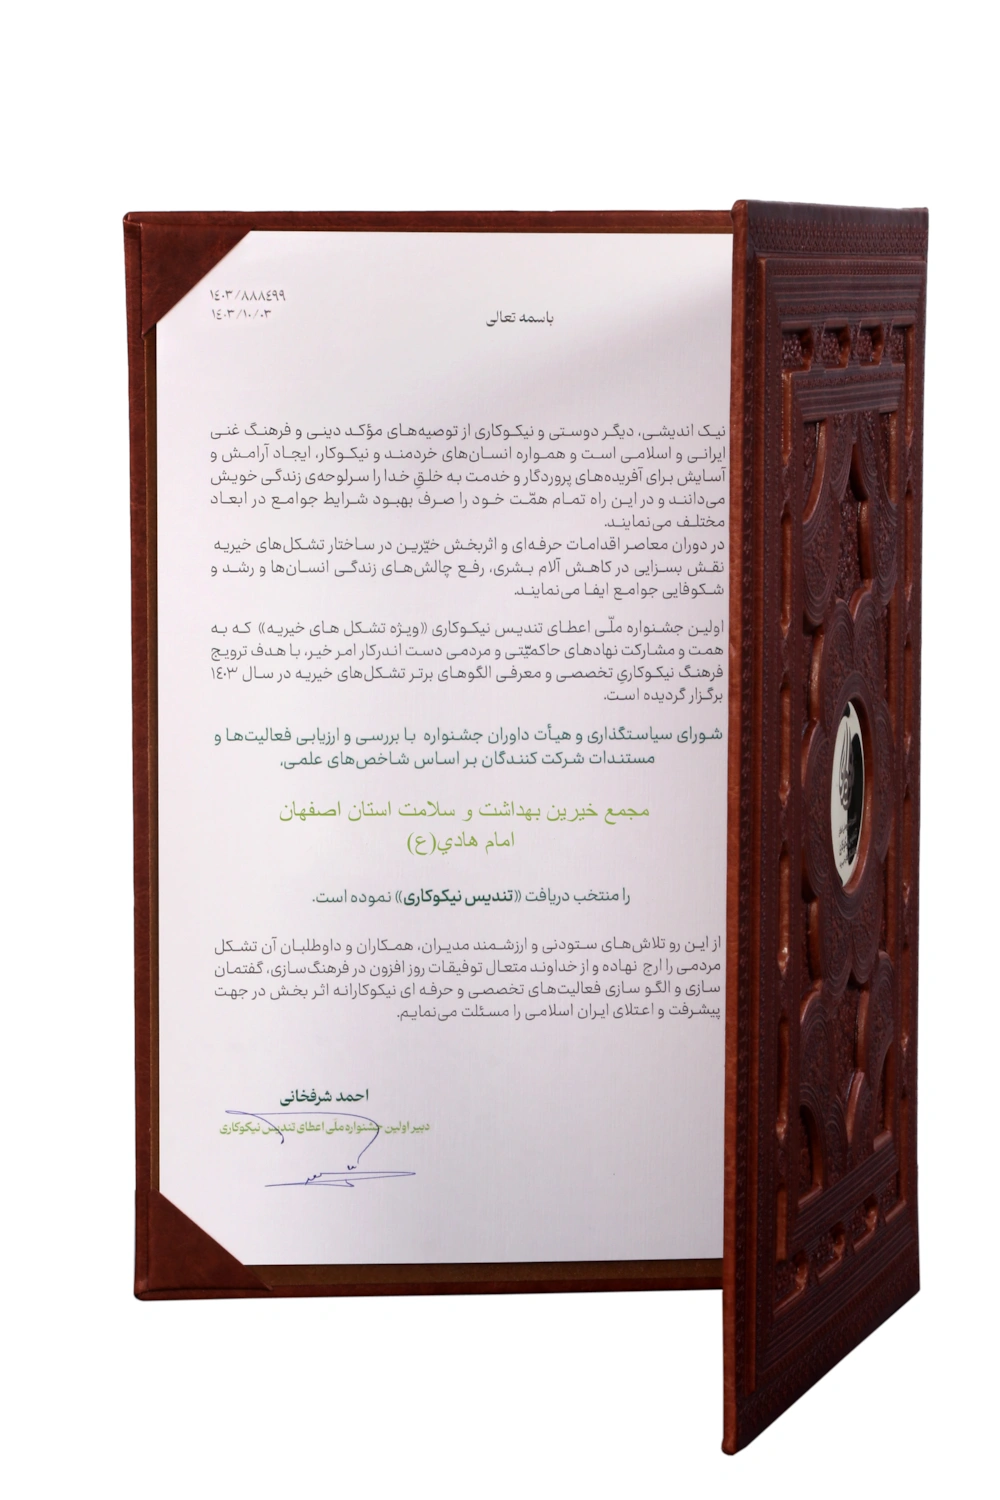 ۱٤۰۳/۸۸۸٤۹۹
۱٤۰۳/۱۰/۰۳
باسمه تعالی
نیک اندیشی، دیگر دوستی و نیکوکاری از توصیه‌های مؤکد دینی و فرهنگ غنی
ایرانی و اسلامی است و همواره انسان‌های خردمند و نیکوکار، ایجاد آرامش و
آسایش برای آفریده‌های پروردگار و خدمت به خلقِ خدا را سرلوحه‌ی زندگی خویش
می‌دانند و در این راه تمام همّت خود را صرف بهبود شرایط جوامع در ابعاد
مختلف می‌نمایند.
در دوران معاصر اقدامات حرفه‌ای و اثربخش خیّرین در ساختار تشکل‌های خیریه
نقش بسزایی در کاهش آلام بشری، رفع چالش‌های زندگی انسان‌ها و رشد و
شکوفایی جوامع ایفا می‌نمایند.
اولین جشنواره ملّی اعطای تندیس نیکوکاری «ویژه تشکل های خیریه» که به
همت و مشارکت نهادهای حاکمیّتی و مردمی دست اندرکار امر خیر، با هدف ترویج
فرهنگ نیکوکاریِ تخصصی و معرفی الگوهای برتر تشکل‌های خیریه در سال ۱٤۰۳
برگزار گردیده است.
شورای سیاستگذاری و هیأت داوران جشنواره با بررسی و ارزیابی فعالیت‌ها و
مستندات شرکت کنندگان بر اساس شاخص‌های علمی،
مجمع خیرین بهداشت و سلامت استان اصفهان
امام هادي(ع)
را منتخب دریافت «تندیس نیکوکاری» نموده است.
از این رو تلاش‌های ستودنی و ارزشمند مدیران، همکاران و داوطلبان آن تشکل
مردمی را ارج نهاده و از خداوند متعال توفیقات روز افزون در فرهنگ‌سازی، گفتمان
سازی و الگو سازی فعالیت‌های تخصصی و حرفه ای نیکوکارانه اثر بخش در جهت
پیشرفت و اعتلای ایران اسلامی را مسئلت می‌نمایم.
احمد شرفخانی
دبیر اولین جشنواره ملّی اعطای تندیس نیکوکاری